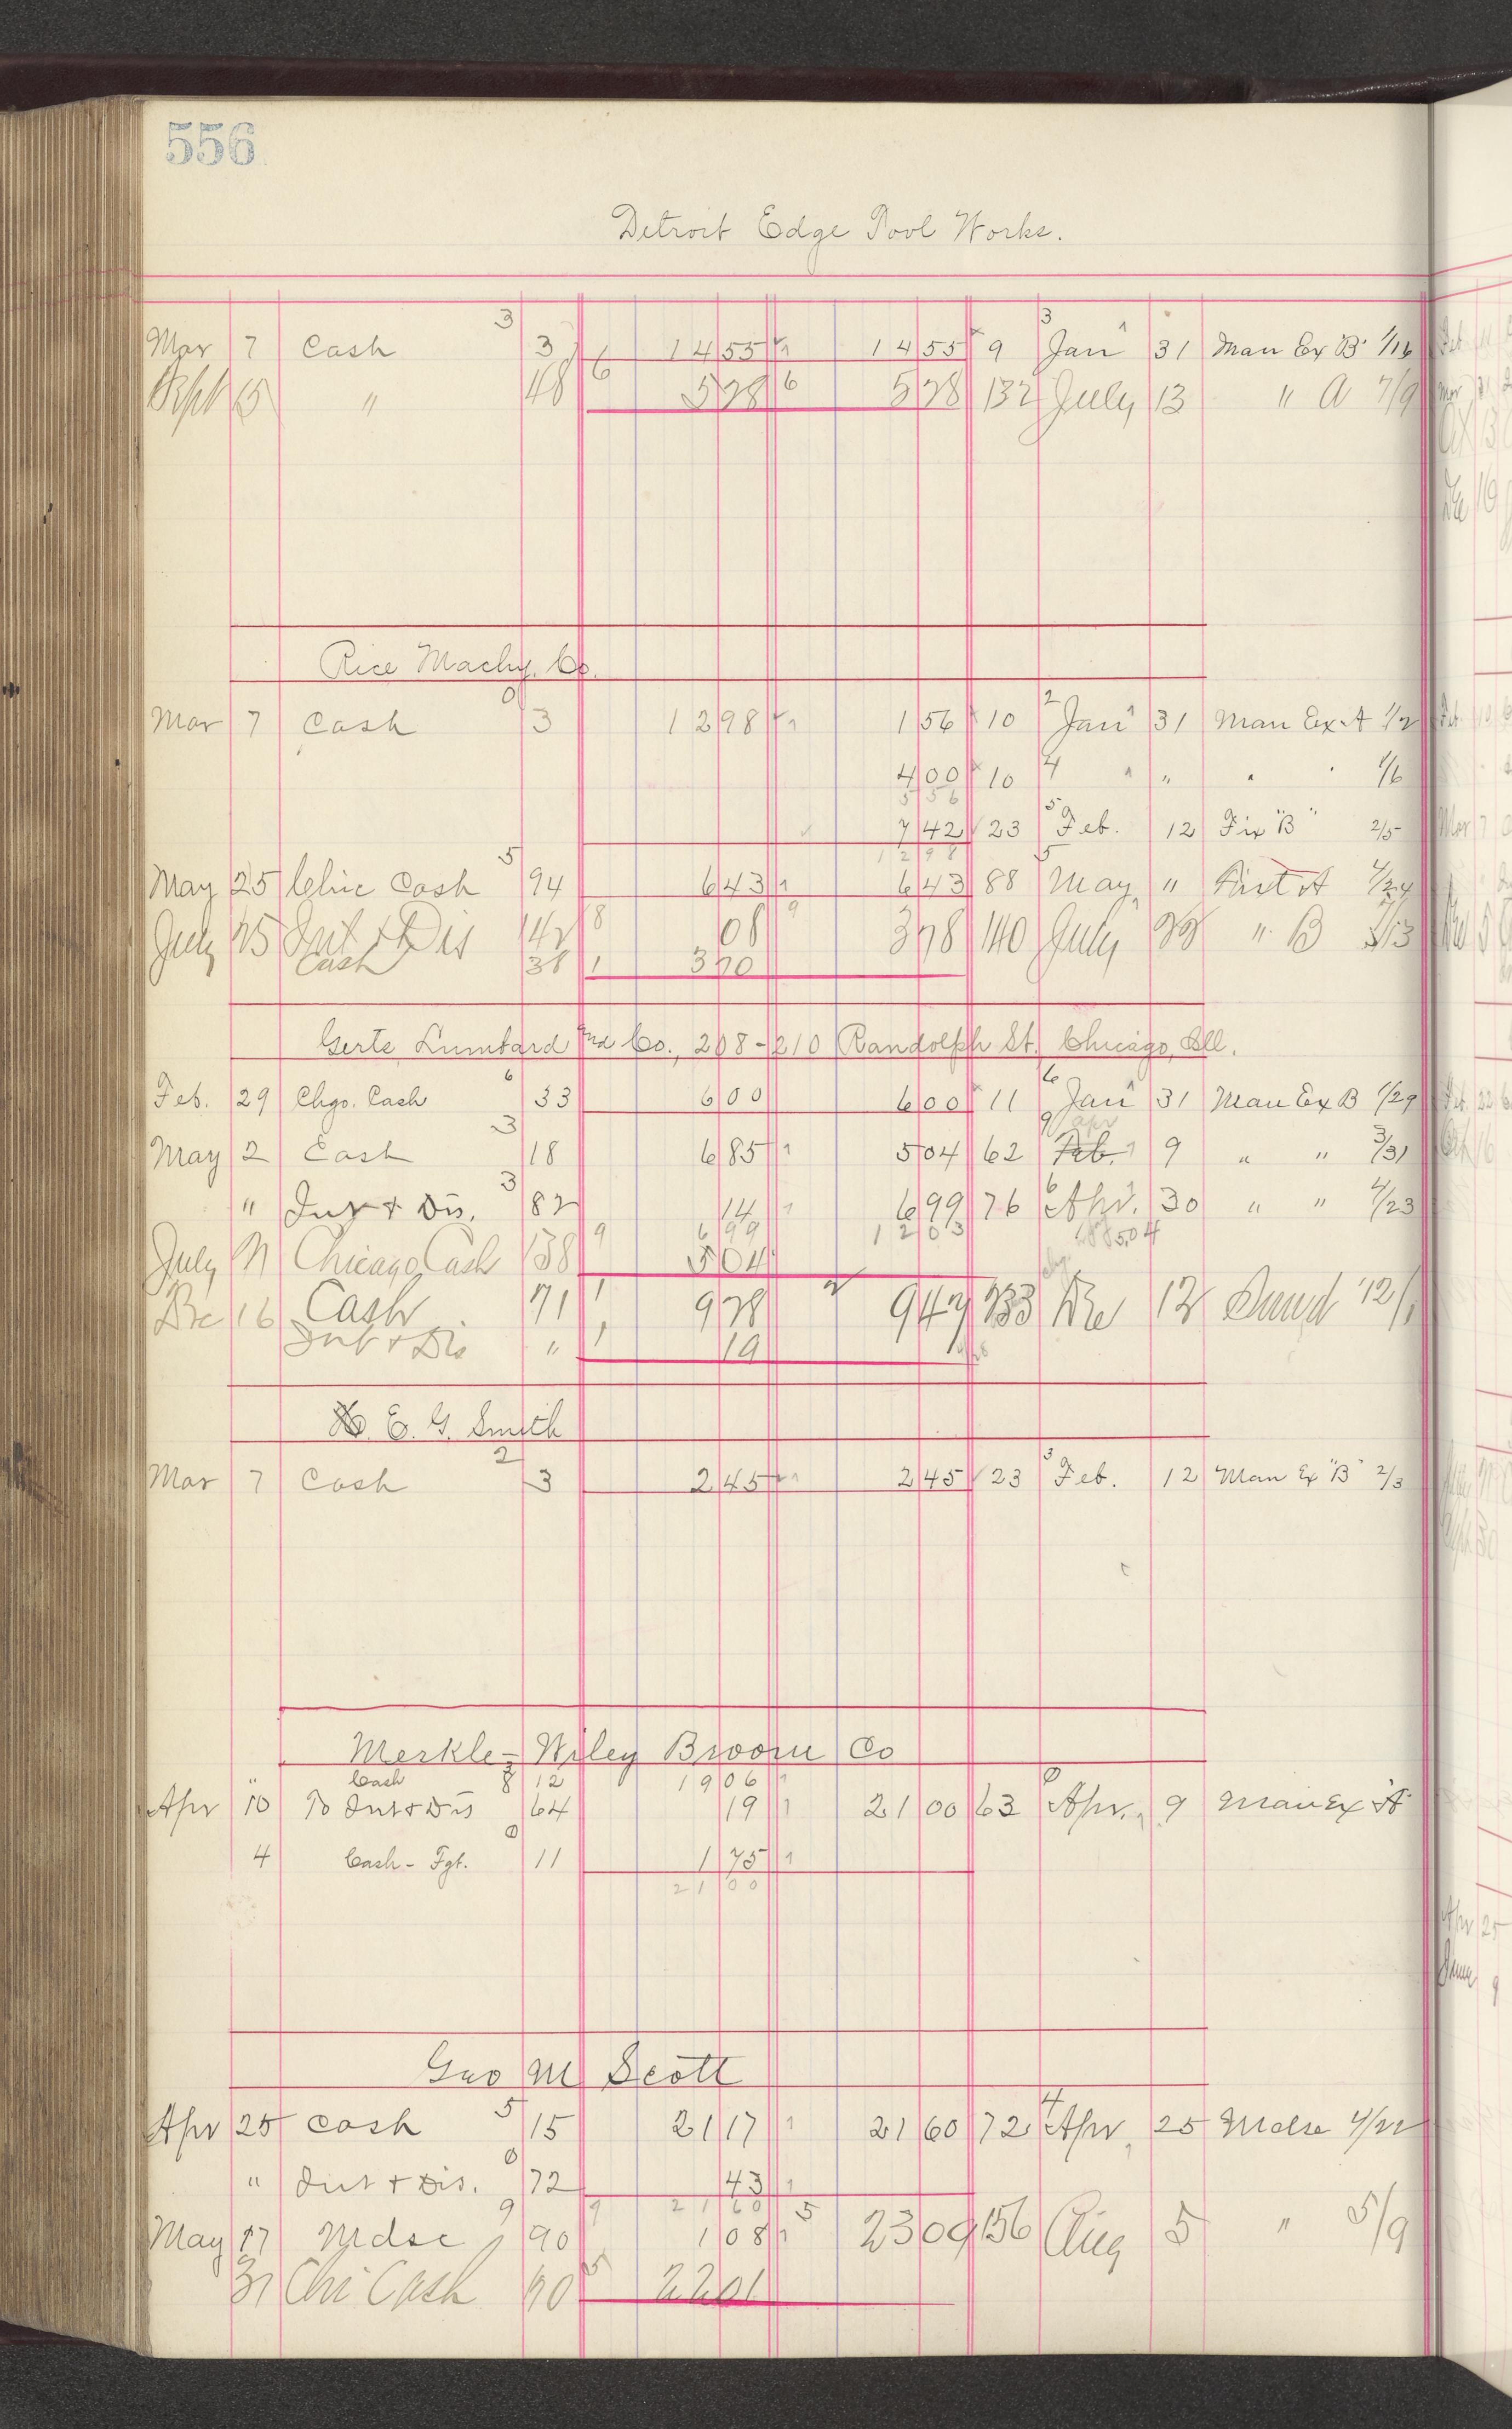 556
Detroit Edge Tool Works.
3 3
Mar 7 Cash 3 14 55 14 55 9 Jan 31 Man Ex "B" 1/16
Sept 15 " 48 6 5 28 6 5 28 132 July 13 " A 7/9
Rice Machy. Co.
0 2
Mar 7 Cash 3 12 98 1 56 10 Jan 31 Man Ex A 1/2
4 00 10 4 " " " " 1/6
5 56
7 42 23 5 Feb. 12 Fix "B" 2/5
12 98
May 25 Chic Cash 5 94 6 43 6 43 88 5 May " A 4/24
July 25 Int & Dis 142 8 08 9 3 78 140 July B
Cash 38 1 3 70
Gerts Lumbard and Co., 208-210 Randolph St. Chicago, Ill.
Feb. 29 Chgo. Cash 6 33 6 00 6 00 11 6 Jan 31 Man Ex B 1/29
9 Apr
May 2 Cash 3 18 6 85 5 04 62 Feb. 9 " " 3/31
" Int & Dis. 3 82 14 6 99 76 6 Apr. 30 " " 4/23
6 99 12 03
July 11 Chicago Cash 138 9 5 04
Dec 16 Cash 71 1 9 28 9 47 233 Dec 12 12/1
Int & Dis " 1 19
E. G. Smith
Mar 7 Cash 2 3 2 45 2 45 23 3 Feb. 12 Man Ex "B" 2/3
Merkle-Wiley Broom Co
" Cash 8 12 19 06
Apr 10 To Int & Dis 64 19 21 00 63 0 Apr. 9 Man Ex "A"
4 Cash - Fgt. 0 11 1 75
21 00
Geo M Scott
Apr 25 Cash 5 15 21 17 21 60 72 4 Apr 25 Mdse 4/22
" Int & Dis. 0 72 43
21 60
May 17 Mdse 9 90 9 1 08 5 23 09 156 Aug 5 " 5/9
31 Chi Cash 5 22 01